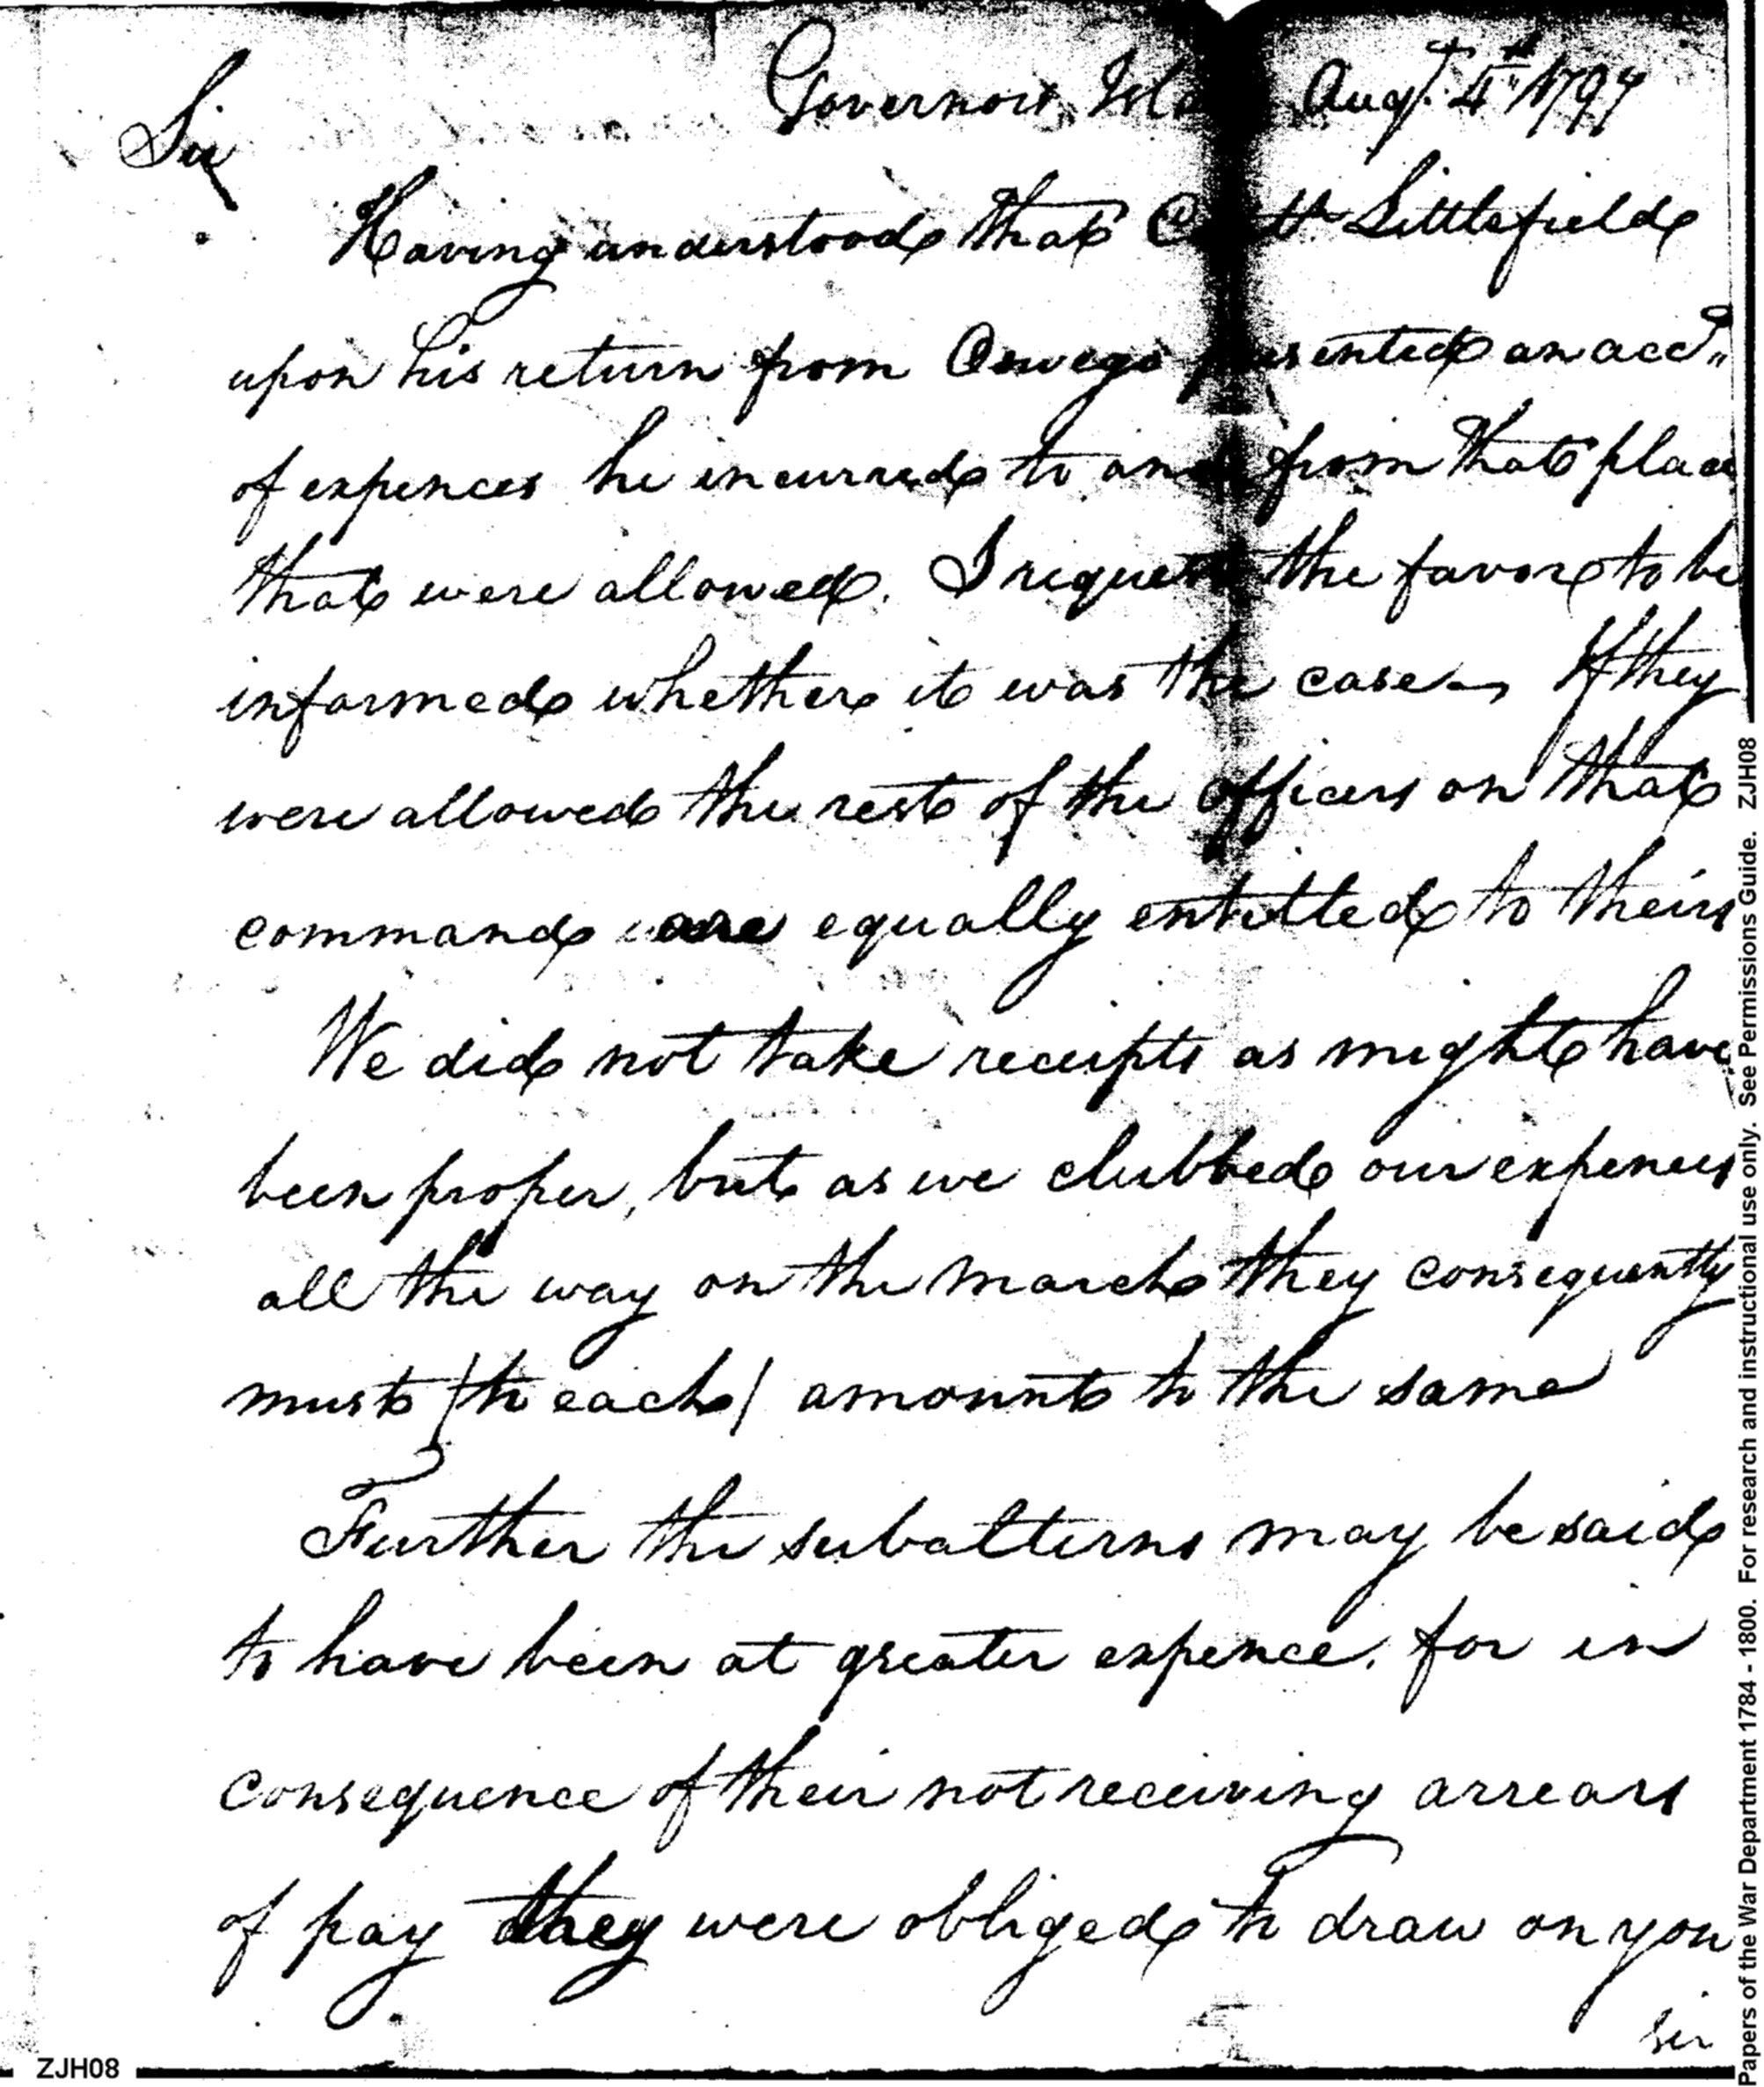 Governors Isla Augt. 4th 1797
Sir
Having understood that Captt Littlefield
upon his return from Oswego presented an acct.
of expences he incurred to and from that place
that were allowed. I request the favor to be
informed whether it was the case—, If they
were allowed the rest of the officers on that
command are equally entitled to theirs
We did not take receipts as might have
been proper, but as we clubbed our expences
all the way on the march they consequently
must /to each/ amount to the same
Further the subalterns may be said
to have been at greater expence, for in
consequence of their not receiving arrears
of pay they were obliged to draw on you
sir
ZJH08
Papers of the War Department 1784 - 1800. For research and instructional use only. See Permissions Guide. ZJH08